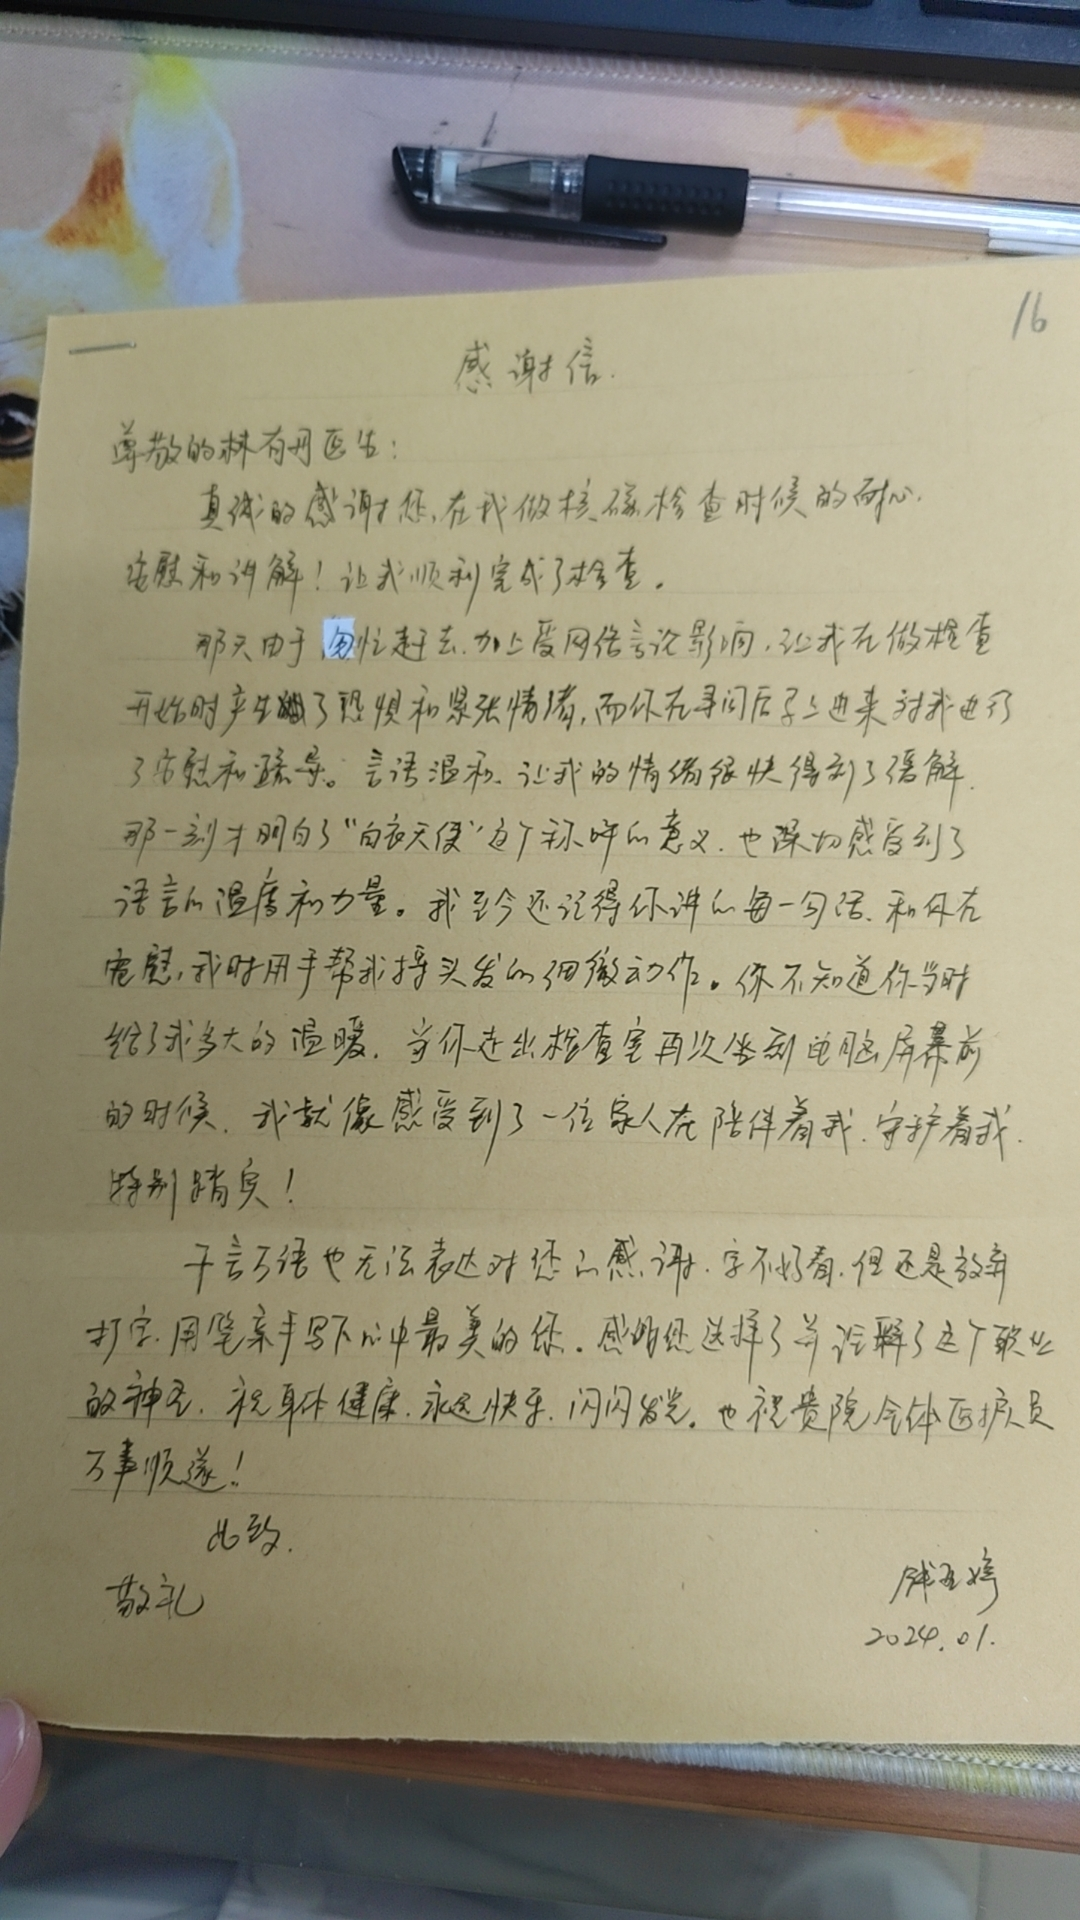 16
感谢信.
尊敬的林有丹医生:
真诚的感谢您,在我做核磁检查时候的耐心.
安慰和讲解!让我顺利完成了检查。
那天由于匆忙赶去,加上受网络言论影响,让我在做检查
开始时产生了恐惧和紧张情绪,而你在寻问后马上进来对我进行
了安慰和疏导。言语温和,让我的情绪很快得到了缓解.
那一刻才明白了“白衣天使”这个称呼的意义,也深切感受到了
语言的温度和力量。我至今还记得你讲的每一句话,和你在
安慰,我时用手帮我捋头发的细微动作。你不知道你当时
给了我多大的温暖,当你走出检查室再次坐到电脑屏幕前
的时候,我就像感受到了一位家人在陪伴着我,守护着我,
特别踏实!
千言万语也无法表达对您的感谢,字不好看,但还是放弃
打字,用笔亲手写下心中最美的您。感谢您选择了并诠释了这个职业
的神圣,祝身体健康,永远快乐,闪闪发光。也祝贵院全体医护人员
万事顺遂!
此致.
敬礼
2024.01.